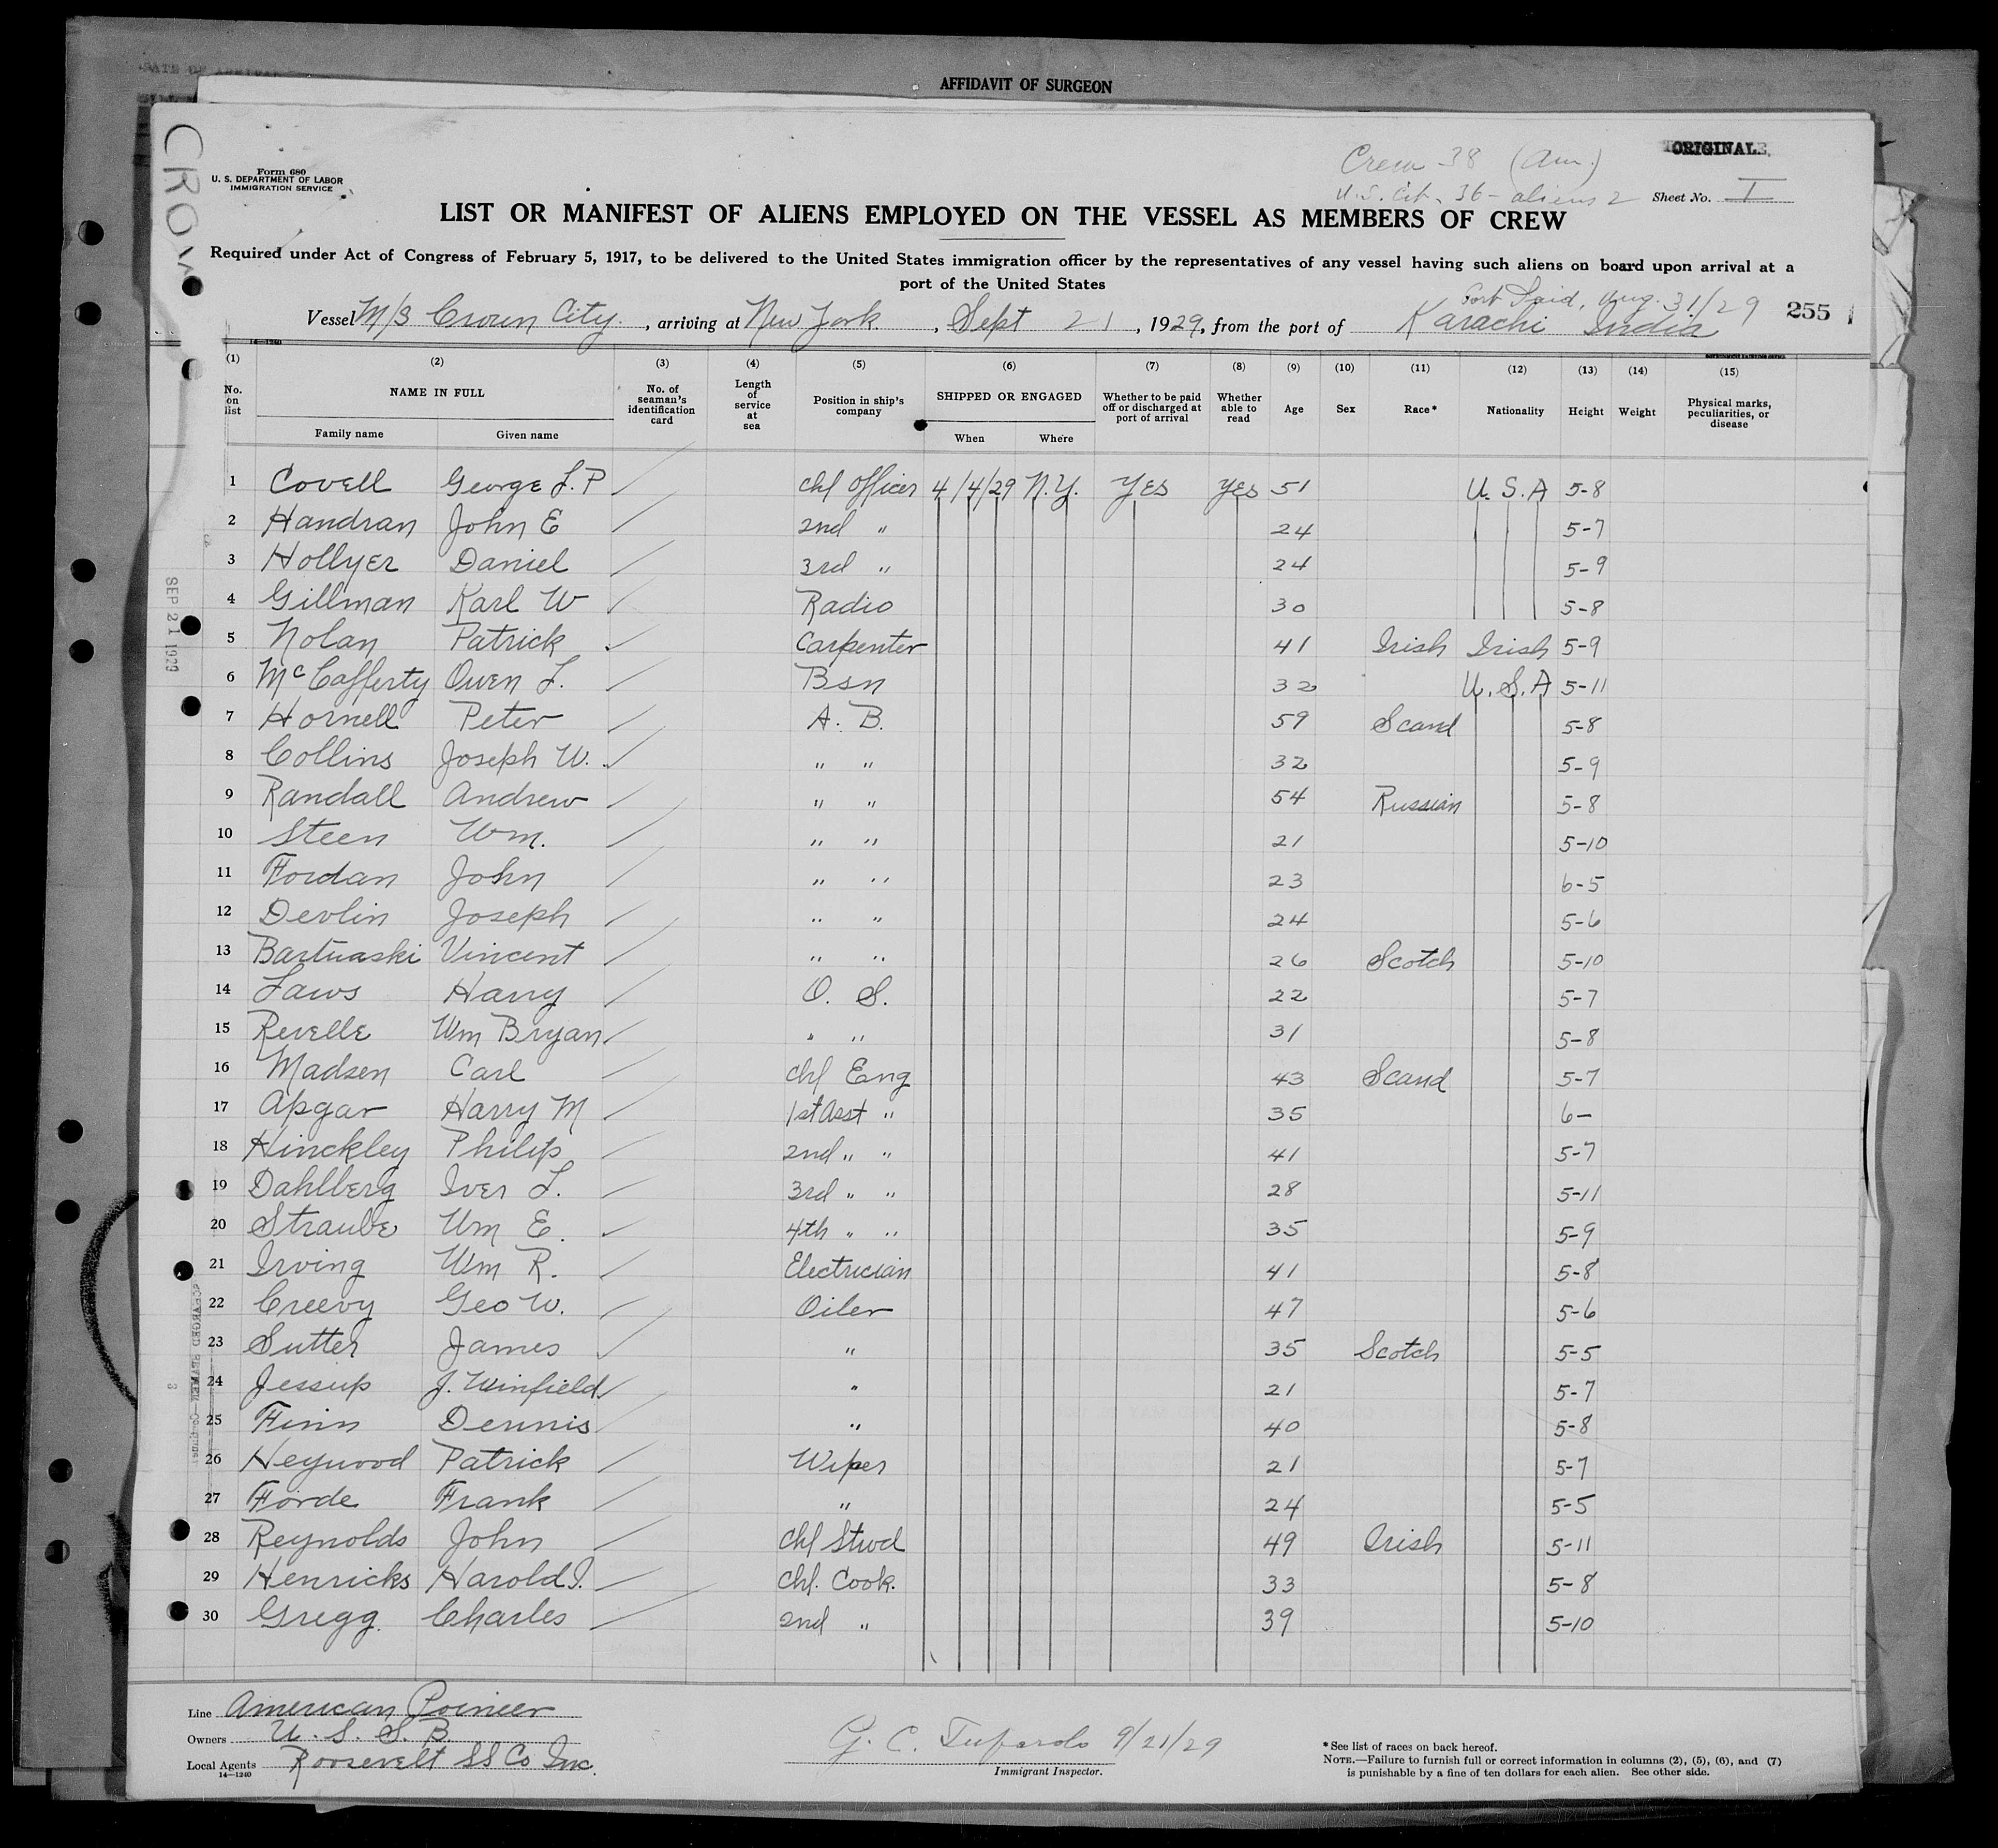 AFFIDAVIT OF SURGEON
CROW
Form 680
U. S. DEPARTMENT OF LABOR
IMMIGRATION SERVICE
Crew 38 (Am.)
U.S. Cit. 36 - aliens 2
ORIGINAL
Sheet No. I
LIST OR MANIFEST OF ALIENS EMPLOYED ON THE VESSEL AS MEMBERS OF CREW
Required under Act of Congress of February 5, 1917, to be delivered to the United States immigration officer by the representatives of any vessel having such aliens on board upon arrival at a
port of the United States
Port Said, Aug. 31/29
Vessel M/S Crown City, arriving at New York, Sept 21, 1929, from the port of Karachi India
255
14-1240
(1) (2) (3) (4) (5) (6) (7) (8) (9) (10) (11) (12) (13) (14) (15)
No. on list NAME IN FULL Family name Given name No. of seaman's identification card Length of service at sea Position in ship's company SHIPPED OR ENGAGED When Where Whether to be paid off or discharged at port of arrival Whether able to read Age Sex Race* Nationality Height Weight Physical marks, peculiarities, or disease
1 Covell George L.P chf officer 4/4/29 N.Y. Yes Yes 51 U.S.A 5-8
2 Handran John E 2nd " 24 5-7
3 Hollyer Daniel 3rd " 24 5-9
4 Gillman Karl W Radio 30 5-8
5 Nolan Patrick Carpenter 41 Irish Irish 5-9
6 McCafferty Owen L. Bsn 32 U.S.A 5-11
7 Hornell Peter A. B. 59 Scand 5-8
8 Collins Joseph W. " " 32 5-9
9 Randall Andrew " " 54 Russian 5-8
10 Steen Wm. " " 21 5-10
11 Fordan John " " 23 6-5
12 Devlin Joseph " " 24 5-6
13 Bartuaski Vincent " " 26 Scotch 5-10
14 Laws Harry O. S. 22 5-7
15 Revelle Wm Bryan " " 31 5-8
16 Madsen Carl chf Eng 43 Scand 5-7
17 Apgar Harry M 1st Asst " 35 6-
18 Hinckley Philip 2nd " " 41 5-7
19 Dahlberg Iver L. 3rd " " 28 5-11
20 Straube Wm E. 4th " " 35 5-9
21 Irving Wm R. Electrician 41 5-8
22 Creevy Geo W. Oiler 47 5-6
23 Sutter James " 35 Scotch 5-5
24 Jessup J. Winfield " 21 5-7
25 Finn Dennis " 40 5-8
26 Heywood Patrick Wiper 21 5-7
27 Forde Frank " 24 5-5
28 Reynolds John chf Stwd 49 Irish 5-11
29 Henricks Harold J. chf. Cook. 33 5-8
30 Gregg. Charles 2nd " 39 5-10
SEP 21 1929
Line American Poineer
Owners U. S. S. B.
Local Agents Roosevelt SS Co Inc.
14-1240
G. C. 9/21/29
Immigrant Inspector.
*See list of races on back hereof.
NOTE.—Failure to furnish full or correct information in columns (2), (5), (6), and (7)
is punishable by a fine of ten dollars for each alien. See other side.